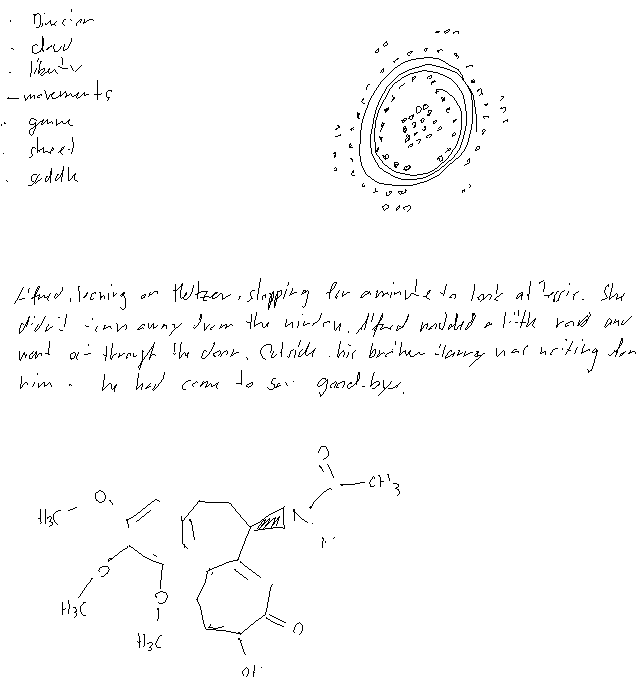 · Direction
· cloud
· liberty
– movements
· game
· street
· saddle
Alfred, leaning on Meltzer, stopping for a minute to look at Jessie. She
didn't turn away from the window. Alfred nodded a little and
went out through the door. Outside, his brother Harry was waiting for
him. he had come to say good-bye.
O
CH3
O
N
H3C
O
O
H3C
H3C
O